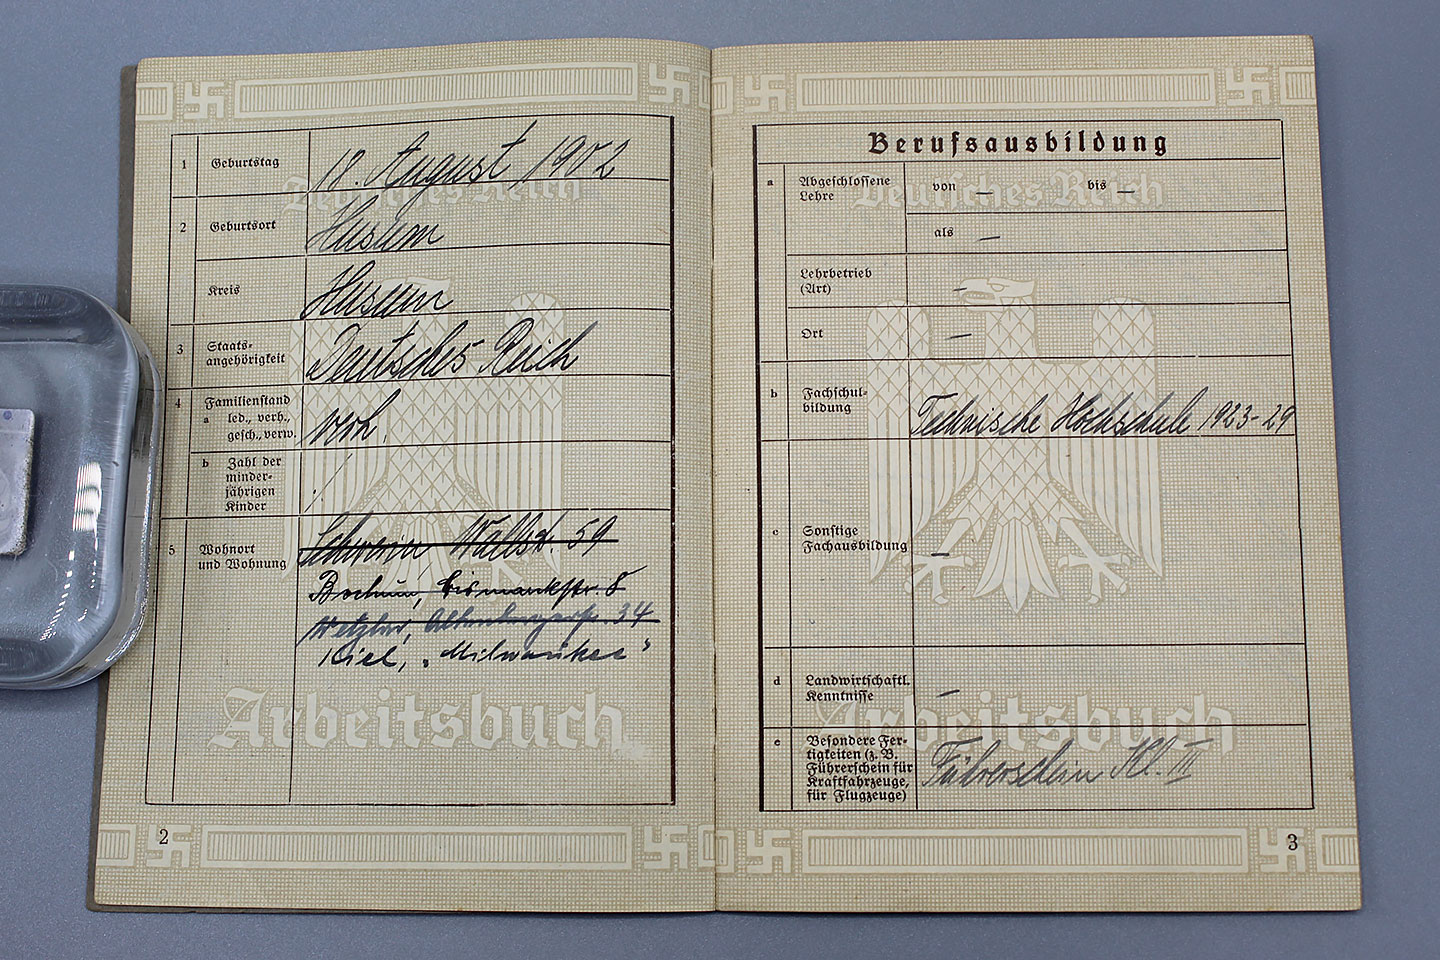 1 Geburtstag 18. August 1902
2 Geburtsort Husum
Kreis Husum
3 Staats-
angehörigkeit Deutsches Reich
4 Familienstand
a led., verh.,
gesch., verw. verh.
b Zahl der
minder-
jährigen
Kinder /
5 Wohnort
und Wohnung
Schwerin, Wallstr. 59
Bochum, Bismarckstr. 8
Wetzlar, 34
Kiel, „Milwaukee"
Deutsches Reich
Arbeitsbuch
2
Berufsausbildung
a Abgeschlossene
Lehre
von — bis —
als —
Lehrbetrieb
(Art) —
Ort —
b Fachschul-
bildung Technische Hochschule 1923-29
c Sonstige
Fachausbildung —
d Landwirtschaftl.
Kenntnisse —
e Besondere Fer-
tigkeiten (z. B.
Führerschein für
Kraftfahrzeuge,
für Flugzeuge)
Führerschein Kl. III
Deutsches Reich
Arbeitsbuch
3